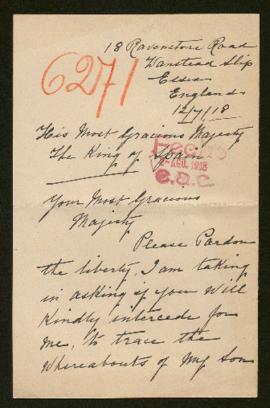 18 Ravenstone Road
Wanstead Slip
Essex
England
12/7/18
6271
His Most Gracious Majesty
The King of Spain
2-AGO. 1918
e.a.c.
Your Most Gracious
Majesty
Please Pardon
the liberty, I am taking
in asking if you Will
Kindly intercede for
Me, to trace the
Whereabouts of My Son